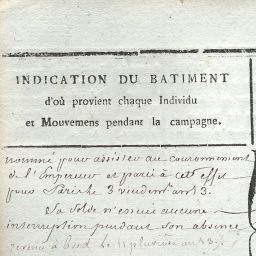 INDICATION DU BATIMENT
d'où provient chaque Individu
et Mouvemens pendant la campagne.
nommé pour assister au couronnement
de l'Empereur et parti à cet effet
pour Paris le 3 vendem.re an 13.
Sa solde n'essuie aucune
interruption pendant son absence
revenu à bord le 11 pluviose an 13.